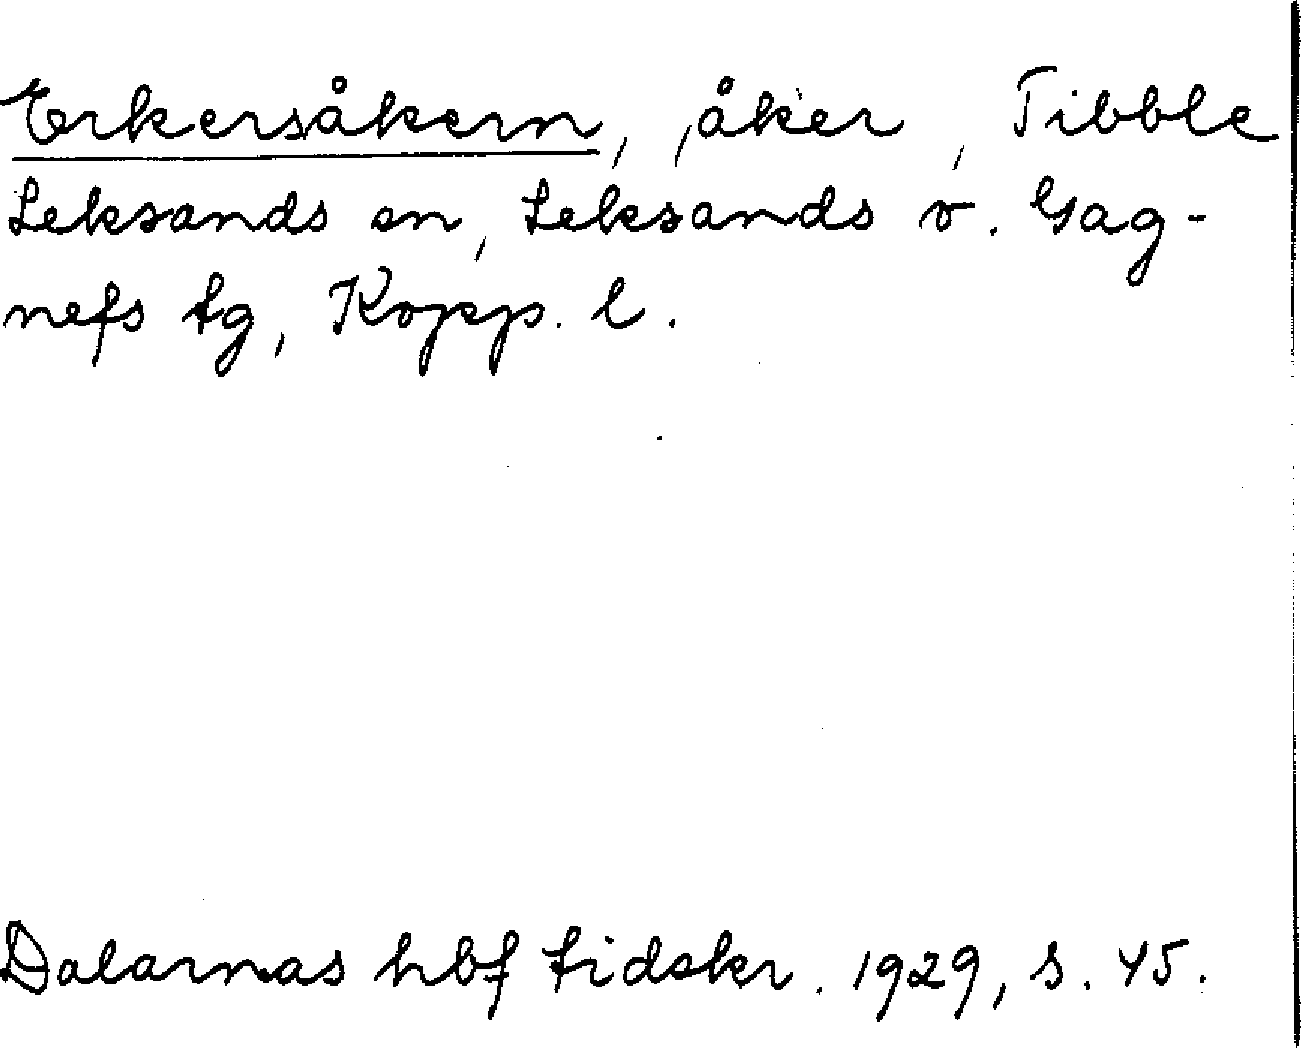 Erkersåkern, åker, Tibble
Leksands sn, Leksands o. Gag-
nefs tg, Kopp. l.
Dalarnas hbf tidskr. 1929, s. 45.